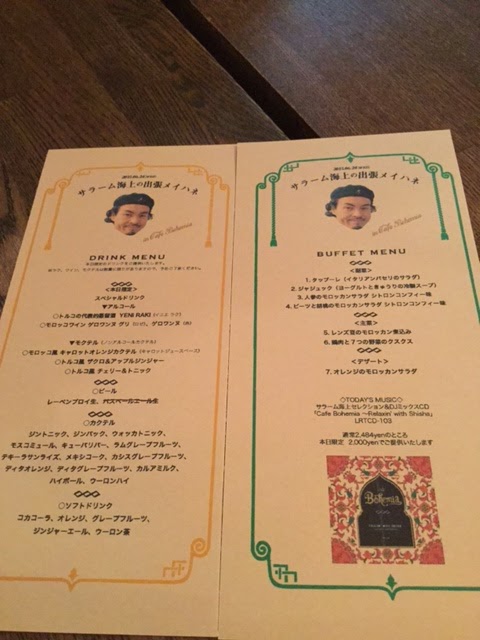 サラーム海上の出張メイハネ
in Cafe Bohemia
DRINK MENU
<本日限定>
スペシャルドリンク
▼アルコール
○トルコの代表的蒸留酒 YENI RAKI
○モロッコワイン ゲロワンヌ グリ ゲロワンヌ
▼モクテル (ノンアルコールカクテル)
○モロッコ風 キャロットオレンジカクテル (キャロットジュースベース)
○トルコ風 ザクロ&アップルジンジャー
○トルコ風 チェリー&トニック
○ビール
レーベンブロイ生、
○カクテル
ジントニック、ジンバック、ウォッカトニック、
モスコミュール、キューバリバー、ラムグレープフルーツ、
テキーラサンライズ、メキシコーク、カシスグレープフルーツ、
ディタオレンジ、ディタグレープフルーツ、カルアミルク、
ハイボール、ウーロンハイ
○ソフトドリンク
コカコーラ、オレンジ、グレープフルーツ、
ジンジャーエール、ウーロン茶
サラーム海上の出張メイハネ
in Cafe Bohemia
BUFFET MENU
<前菜>
1. タッブーレ (イタリアンパセリのサラダ)
2. ジャジュック (ヨーグルトときゅうりの冷製スープ)
3. 人参のモロッカンサラダ シトロンコンフィー味
4. ビーツと胡桃のモロッカンサラダ シトロンコンフィー味
<主菜>
5. レンズ豆のモロッカン煮込み
6. 鶏肉と7つの野菜のクスクス
<デザート>
7. オレンジのモロッカンサラダ
◇TODAY'S MUSIC◇
サラーム海上セレクション&DJミックスCD
「Cafe Bohemia ～Relaxin' with Shisha」
LRTCD-103
通常2,484yenのところ
本日限定 2,000yenでご提供いたします
Bohemia